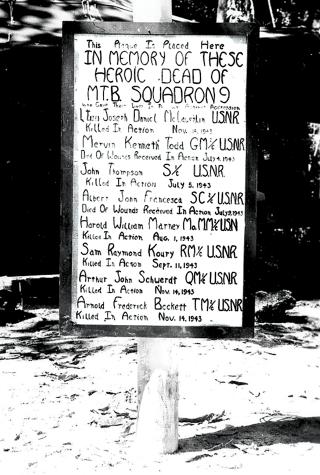 This Plaque Is Placed Here
IN MEMORY OF THESE
HEROIC DEAD OF
M.T.B. SQUADRON 9
Who Gave Their Lives In The War Against Aggression
Lt(jg) Joseph Daniel McLaughlin U.S.N.R.
Killed In Action Nov. 14, 1943
Mervin Kenneth Todd GM 2/c U.S.N.R.
Died Of Wounds Received In Action July 4, 1943
John Thompson S 1/c U.S.N.R.
Killed In Action July 5, 1943
Albert John Francesca SC 2/c U.S.N.R.
Died Of Wounds Received In Action July 3, 1943
Harold William Marney MoMM 2/c USN
Killed In Action Aug. 1, 1943
Sam Raymond Koury RM 2/c U.S.N.R.
Killed In Action Sept. 11, 1943
Arthur John Schwerdt QM 2/c U.S.N.R.
Killed In Action Nov. 14, 1943
Arnold Frederick Beckett TM 2/c U.S.N.R.
Killed In Action Nov. 14, 1943